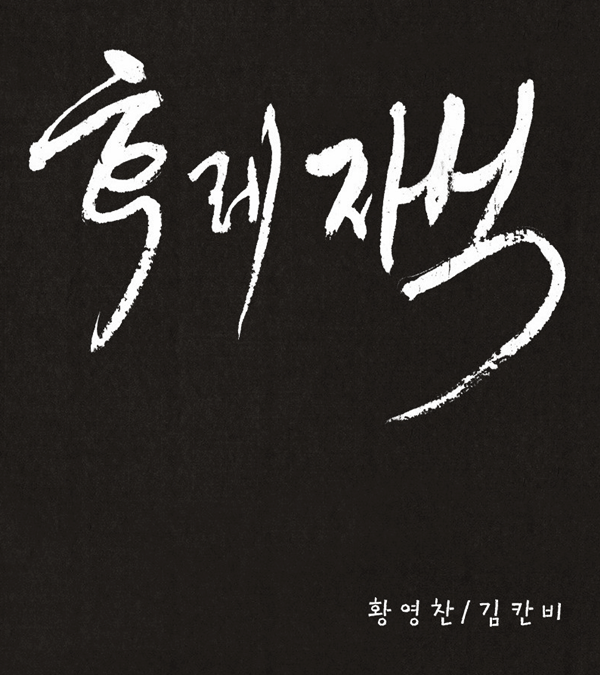 후레자식
황영찬/김칸비